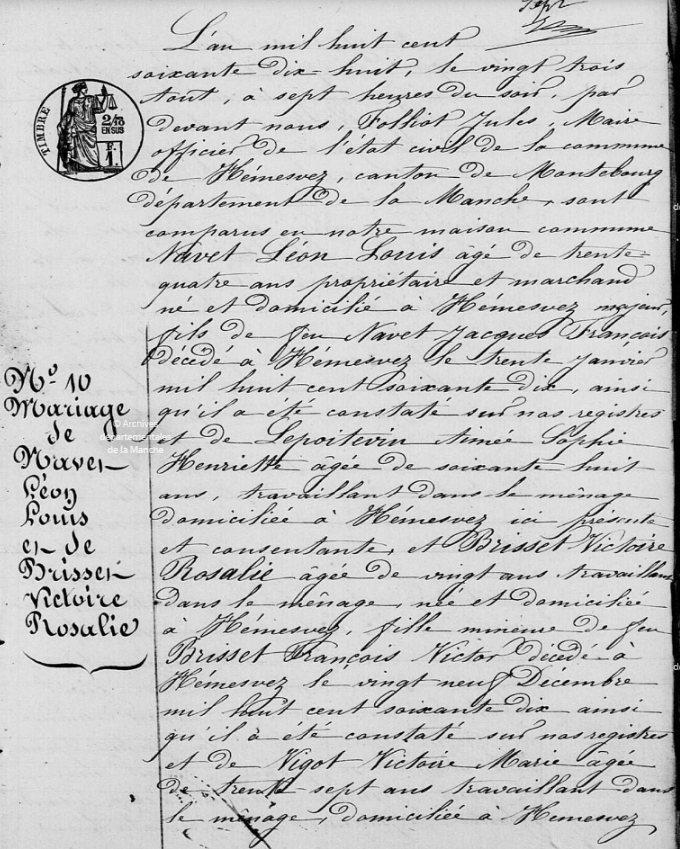 Sept
L'an mil huit cent
soixante dix-huit, le vingt trois
aout, à sept heures du soir, par
devant nous, Folliot Jules, Maire
officier de l'état civil de la commune
de Hémesvez, canton de Montebourg
département de la Manche, sont
comparus en notre maison commune
Navet Léon Louis âgé de trente-
quatre ans propriétaire et marchand
né et domicilié à Hémesvez majeur,
fils de feu Navet Jacques François
décédé à Hémesvez le trente janvier
mil huit cent soixante dix, ainsi
qu'il a été constaté sur nos registres
et de Lepoitevin Aimée Sophie
Henriette âgée de soixante huit
ans, travaillant dans le ménage
domiciliée à Hémesvez ici présente
et consentante, et Brisset Victoire
Rosalie âgée de vingt ans travaillant
dans le ménage, née et domiciliée
à Hémesvez, fille mineure de feu
Brisset François Victor décédé à
Hémesvez le vingt neuf Décembre
mil huit cent soixante dix ainsi
qu'il a été constaté sur nos registres
et de Vigot Victoire Marie âgée
de trente sept ans travaillant dans
le ménage, domiciliée à Hemesvez
TIMBRE
2/10
EN SUS
F.
1.
No 10
Mariage
de
Navet
Léon
Louis
et de
Brisset
Victoire
Rosalie
© Archives
départementales
de la Manche